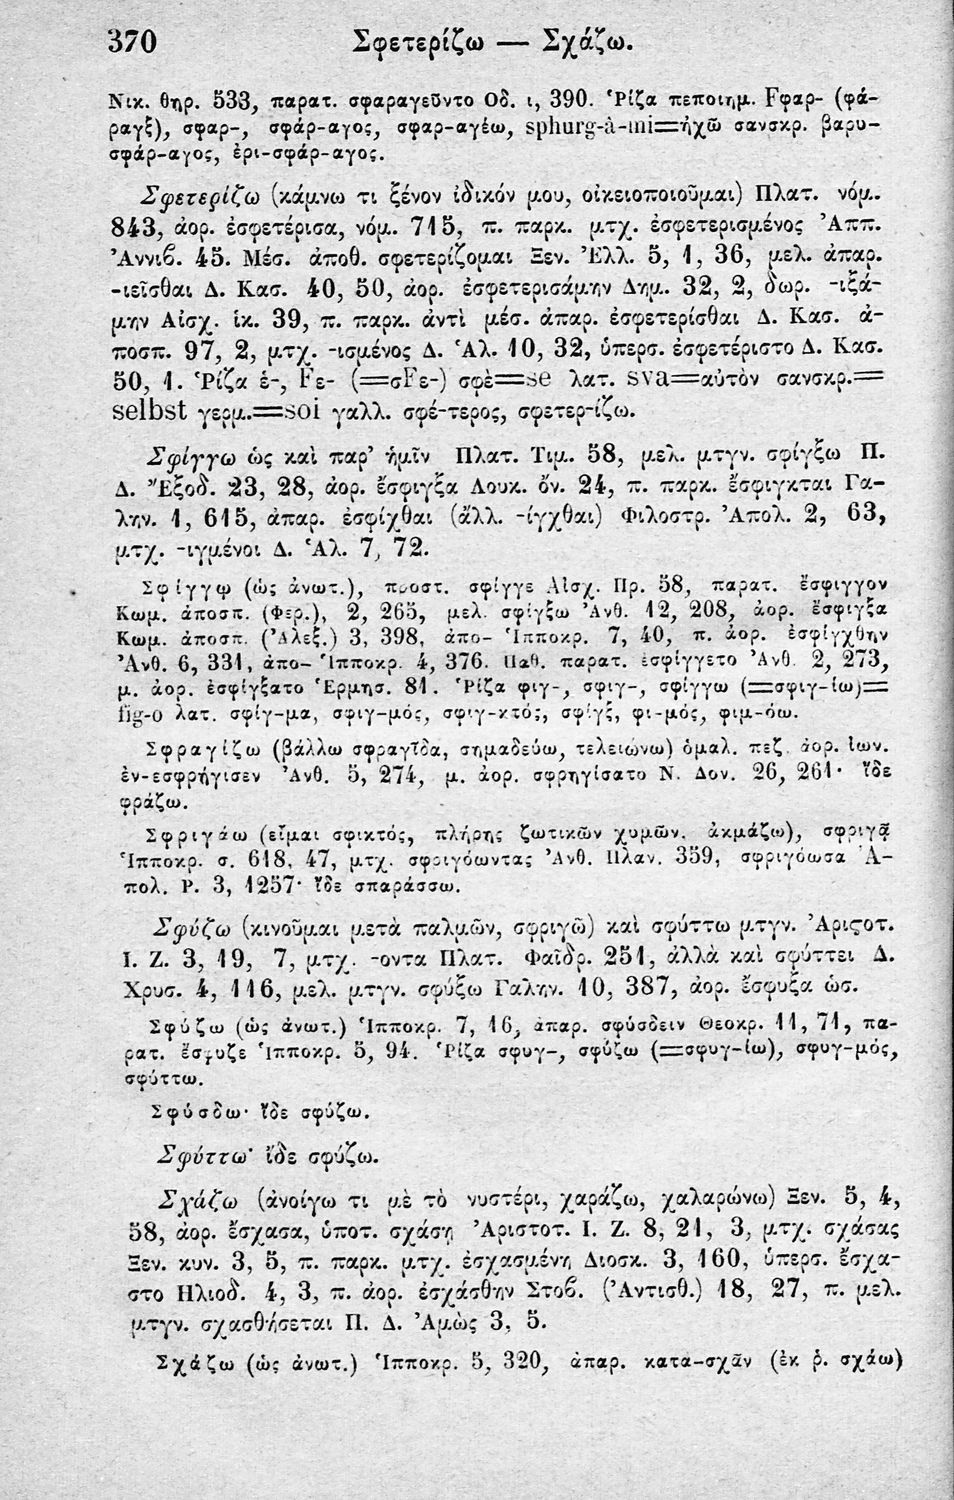 370 Σφετερίζω — Σχάζω.
Νικ. θηρ. 533, παρατ. σφαραγεῦντο Οδ. ι, 390. Ῥίζα πεποιημ. Fφαρ- (φά-
ραγξ), σφαρ-, σφάρ-αγος, σφαρ-αγέω, sphurg-â-mi=ἠχῶ σανσκρ. βαρυ-
σφάρ-αγος, ἐρι-σφάρ-αγος.
Σφετερίζω (κάμνω τι ξένον ἰδικόν μου, οἰκειοποιοῦμαι) Πλατ. νόμ.
843, ἀορ. ἐσφετέρισα, νόμ. 715, π. παρκ. μτχ. ἐσφετερισμένος Ἀππ.
Ἀννιβ. 45. Μέσ. ἀποθ. σφετερίζομαι Ξεν. Ἑλλ. 5, 1, 36, μελ. ἀπαρ.
-ιεῖσθαι Δ. Κασ. 40, 50, ἀορ. ἐσφετερισάμην Δημ. 32, 2, δωρ. -ιξά-
μην Αἰσχ. ἱκ. 39, π. παρκ. ἀντὶ μέσ. ἀπαρ. ἐσφετερίσθαι Δ. Κασ. ἀ-
ποσπ. 97, 2, μτχ. -ισμένος Δ. Ἁλ. 10, 32, ὑπερσ. ἐσφετέριστο Δ. Κασ.
50, 1. Ῥίζα ἑ-, Fε- (=σFε-) σφὲ=se λατ. sva=αὐτὸν σανσκρ.=
selbst γερμ.=soi γαλλ. σφέ-τερος, σφετερ-ίζω.
Σφίγγω ὡς καὶ παρ’ ἡμῖν Πλατ. Τιμ. 58, μελ. μτγν. σφίγξω Π.
Δ. Ἔξοδ. 23, 28, ἀορ. ἔσφιγξα Λουκ. ὄν. 24, π. παρκ. ἔσφιγκται Γα-
λην. 1, 615, ἀπαρ. ἐσφίχθαι (ἄλλ. -ίγχθαι) Φιλοστρ. Ἀπολ. 2, 63,
μτχ. -ιγμένοι Δ. Ἁλ. 7, 72.
Σφίγγω (ὡς ἀνωτ.), προστ. σφίγγε Αἰσχ. Πρ. 58, παρατ. ἔσφιγγον
Κωμ. ἀποσπ. (Φερ.), 2, 265, μελ. σφίγξω Ἀνθ. 12, 208, ἀορ. ἔσφιγξα
Κωμ. ἀποσπ. (Ἀλεξ.) 3, 398, ἀπο- Ἱπποκρ. 7, 40, π. ἀορ. ἐσφίγχθην
Ἀνθ. 6, 331, ἀπο- Ἱπποκρ. 4, 376. Παθ. παρατ. ἐσφίγγετο Ἀνθ. 2, 273,
μ. ἀορ. ἐσφίγξατο Ἑρμησ. 81. Ῥίζα φιγ-, σφιγ-, σφίγγω (=σφιγ-ίω)=
fig-o λατ. σφίγ-μα, σφιγ-μός, σφιγ-κτός, σφίγξ, φι-μός, φιμ-όω.
Σφραγίζω (βάλλω σφραγῖδα, σημαδεύω, τελειώνω) ὁμαλ. πεζ. ἀορ. ἰων.
ἐν-εσφρήγισεν Ἀνθ. 5, 274, μ. ἀορ. σφρηγίσατο Ν. Δον. 26, 261· ἴδε
φράζω.
Σφριγάω (εἶμαι σφικτός, πλήρης ζωτικῶν χυμῶν, ἀκμάζω), σφριγᾷ
Ἱπποκρ. σ. 618, 47, μτχ. σφριγόωντας Ἀνθ. Πλαν. 359, σφριγόωσα Ἀ-
πολ. Ρ. 3, 1257· ἴδε σπαράσσω.
Σφύζω (κινοῦμαι μετὰ παλμῶν, σφριγῶ) καὶ σφύττω μτγν. Ἀριςοτ.
Ι. Ζ. 3, 19, 7, μτχ. -οντα Πλατ. Φαῖδρ. 251, ἀλλὰ καὶ σφύττει Δ.
Χρυσ. 4, 116, μελ. μτγν. σφύξω Γαλην. 10, 387, ἀορ. ἔσφυξα ὡσ.
Σφύζω (ὡς ἀνωτ.) Ἱπποκρ. 7, 16, ἀπαρ. σφύσδειν Θεοκρ. 11, 71, πα-
ρατ. ἔσφυζε Ἱπποκρ. 5, 94. Ῥίζα σφυγ-, σφύζω (=σφυγ-ίω), σφυγ-μός,
σφύττω.
Σφύσδω· ἴδε σφύζω.
Σφύττω· ἴδε σφύζω.
Σχάζω (ἀνοίγω τι μὲ τὸ νυστέρι, χαράζω, χαλαρώνω) Ξεν. 5, 4,
58, ἀορ. ἔσχασα, ὑποτ. σχάσῃ Ἀριστοτ. Ι. Ζ. 8, 21, 3, μτχ. σχάσας
Ξεν. κυν. 3, 5, π. παρκ. μτχ. ἐσχασμένη Διοσκ. 3, 160, ὑπερσ. ἔσχα-
στο Ηλιοδ. 4, 3, π. ἀορ. ἐσχάσθην Στοβ. (Ἀντισθ.) 18, 27, π. μελ.
μτγν. σχασθήσεται Π. Δ. Ἀμὼς 3, 5.
Σχάζω (ὡς ἀνωτ.) Ἱπποκρ. 5, 320, ἀπαρ. κατα-σχᾶν (ἐκ ῥ. σχάω)